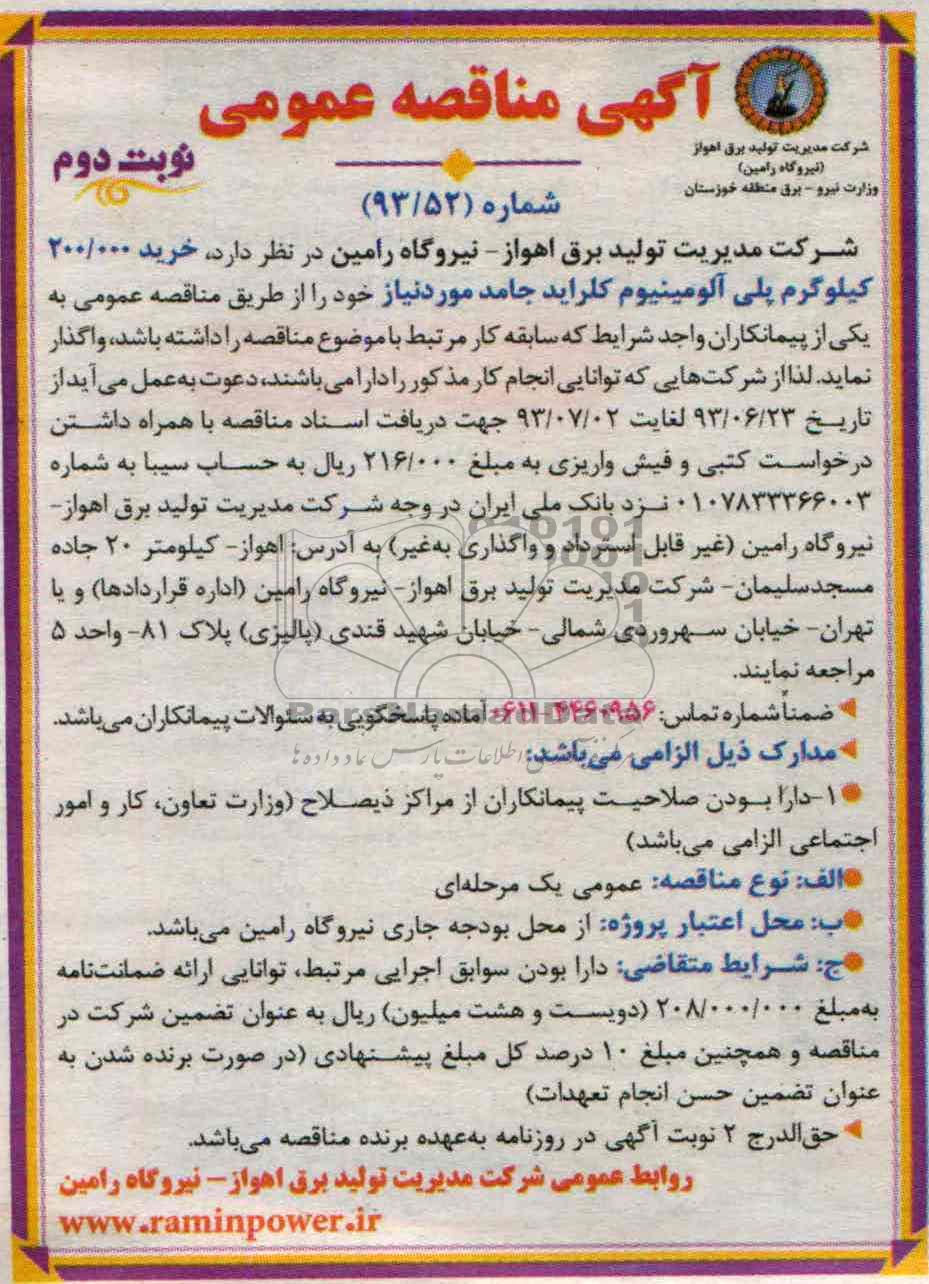 آگهی مناقصه عمومی
شرکت مدیریت تولید برق اهواز
(نیروگاه رامین)
وزارت نیرو - برق منطقه خوزستان
نوبت دوم
شماره (۹۳/۵۲)
شرکت مدیریت تولید برق اهواز- نیروگاه رامین در نظر دارد، خرید ۲۰۰/۰۰۰
کیلوگرم پلی آلومینیوم کلراید جامد موردنیاز خود را از طریق مناقصه عمومی به
یکی از پیمانکاران واجد شرایط که سابقه کار مرتبط با موضوع مناقصه را داشته باشد، واگذار
نماید. لذا از شرکت‌هایی که توانایی انجام کار مذکور را دارا می‌باشند، دعوت به‌عمل می‌آید از
تاریخ ۹۳/۰۶/۲۳ لغایت ۹۳/۰۷/۰۲ جهت دریافت اسناد مناقصه با همراه داشتن
درخواست کتبی و فیش واریزی به مبلغ ۲۱۶/۰۰۰ ریال به حساب سیبا به شماره
۰۱۰۷۸۳۳۳۶۶۰۰۳ نزد بانک ملی ایران در وجه شرکت مدیریت تولید برق اهواز-
نیروگاه رامین (غیر قابل استرداد و واگذاری به‌غیر) به آدرس: اهواز- کیلومتر ۲۰ جاده
مسجدسلیمان- شرکت مدیریت تولید برق اهواز- نیروگاه رامین (اداره قراردادها) و یا
تهران- خیابان سهروردی شمالی- خیابان شهید قندی (پالیزی) پلاک ۸۱- واحد ۵
مراجعه نمایند.
ضمناً شماره تماس: ۰۶۱۱-۴۴۶۰۹۵۶ آماده پاسخگویی به سئوالات پیمانکاران می‌باشد.
مدارک ذیل الزامی می‌باشد:
۱-دارا بودن صلاحیت پیمانکاران از مراکز ذیصلاح (وزارت تعاون، کار و امور
اجتماعی الزامی می‌باشد)
الف: نوع مناقصه: عمومی یک مرحله‌ای
ب: محل اعتبار پروژه: از محل بودجه جاری نیروگاه رامین می‌باشد.
ج: شرایط متقاضی: دارا بودن سوابق اجرایی مرتبط، توانایی ارائه ضمانت‌نامه
به‌مبلغ ۲۰۸/۰۰۰/۰۰۰ (دویست و هشت میلیون) ریال به عنوان تضمین شرکت در
مناقصه و همچنین مبلغ ۱۰ درصد کل مبلغ پیشنهادی (در صورت برنده شدن به
عنوان تضمین حسن انجام تعهدات)
حق‌الدرج ۲ نوبت آگهی در روزنامه به‌عهده برنده مناقصه می‌باشد.
روابط عمومی شرکت مدیریت تولید برق اهواز- نیروگاه رامین
www.raminpower.ir